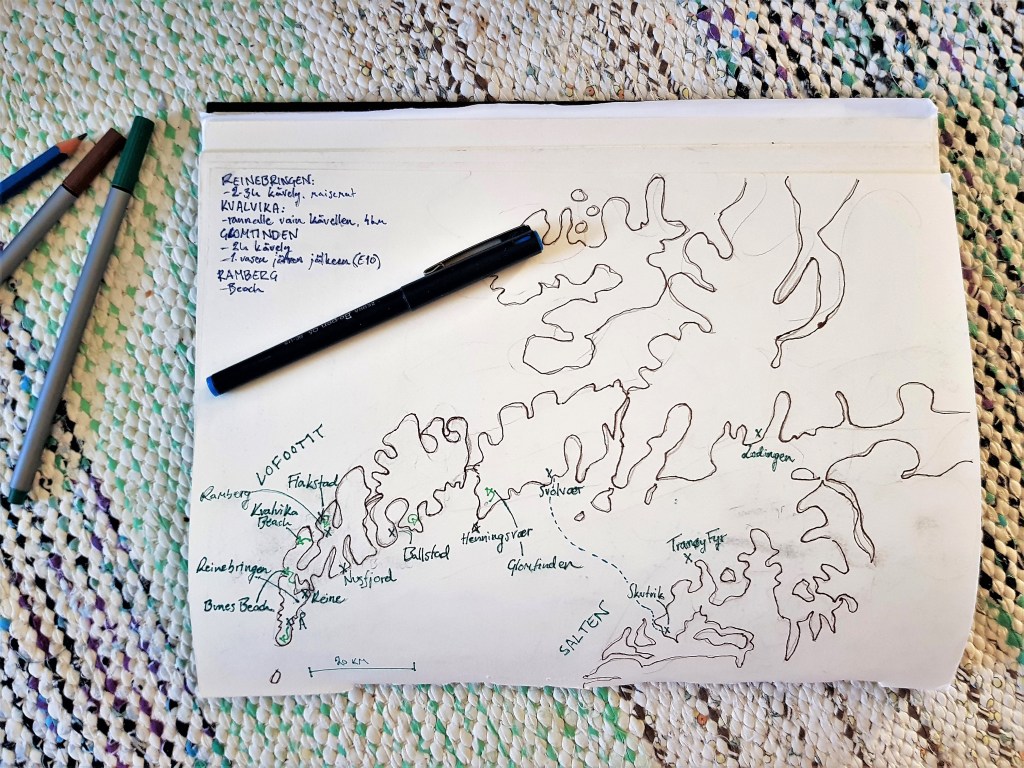 REINEBRINGEN:
-2-3h kävely, maisemat
KVALVIKA:
-rannalle vain kävellen, 4km
GLOMTINDEN
-2h kävely
-1. vasen järven jälkeen (E10)
RAMBERG
-Beach
LOFOOTIT
Ramberg
Flakstad
Kvalvika
Beach
Reinebringen
Bunes Beach
Reine
Å
Nusfjord
Ballstad
Henningsvær
Glomtinden
Svolvær
Lødingen
Tranøy Fyr
Skutvik
SALTEN
20 KM